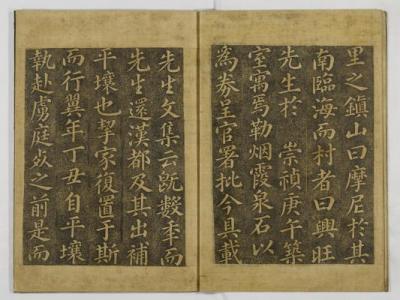 里之鎮山曰摩尼於其
南臨海而村者曰興旺
先生於 崇禎庚午築
室寓焉勒烟霞泉石以
爲券呈官署批今具載
先生文集云旣數年而
先生還漢都及其出補
平壤也挈家復置于斯
而行翼年丁丑自平壤
執赴虜庭故之前是而